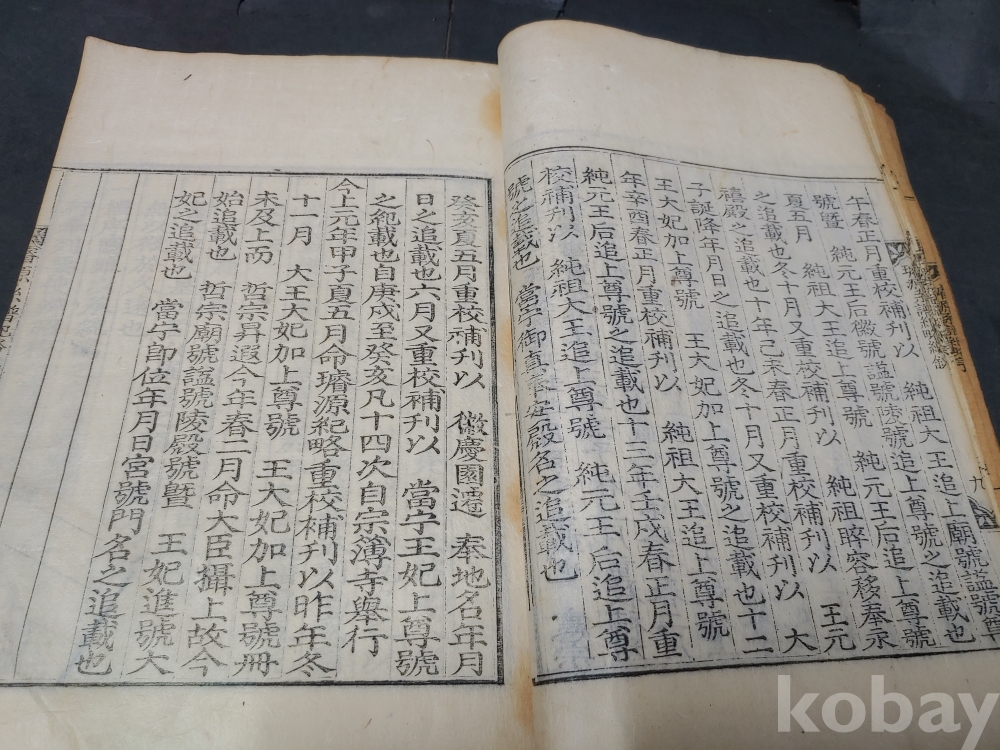 午春正月重校補刊以　純祖大王追上廟號謚號尊
號曁　純元王后徽號謚號陵號追上尊號之追載也
夏五月　純祖大王追上尊號　純元王后追上尊號
之追載也冬十月又重校補刊以　純祖睟容移奉永
禧殿之追載也十年己未春正月重校補刊以　王元
子誕降年月日之追載也冬十月又重校補刊以　大
王大妃加上尊號　王大妃加上尊號之追載也十二
年辛酉春正月重校補刊以　純祖大王追上尊號
純元王后追上尊號之追載也十三年壬戌春正月重
校補刊以　純祖大王追上尊號　純元王后追上尊
號之追載也　當宁御眞奉安殿名之追載也
癸亥夏五月重校補刊以　徽慶園遷　奉地名年月
日之追載也六月又重校補刊以　當宁王妃上尊號
之紀載也自庚戌至癸亥凡十四次自宗簿寺擧行
今上元年甲子夏五月命璿源紀略重校補刊以昨年冬
十一月　大王大妃加上尊號　王大妃加上尊號冊
未及上而　哲宗昇遐今年春二月命大臣攝上故今
始追載也　哲宗廟號謚號陵殿號曁　王妃進號大
妃之追載也　當宁卽位年月日宮號門名之追載也
kobay